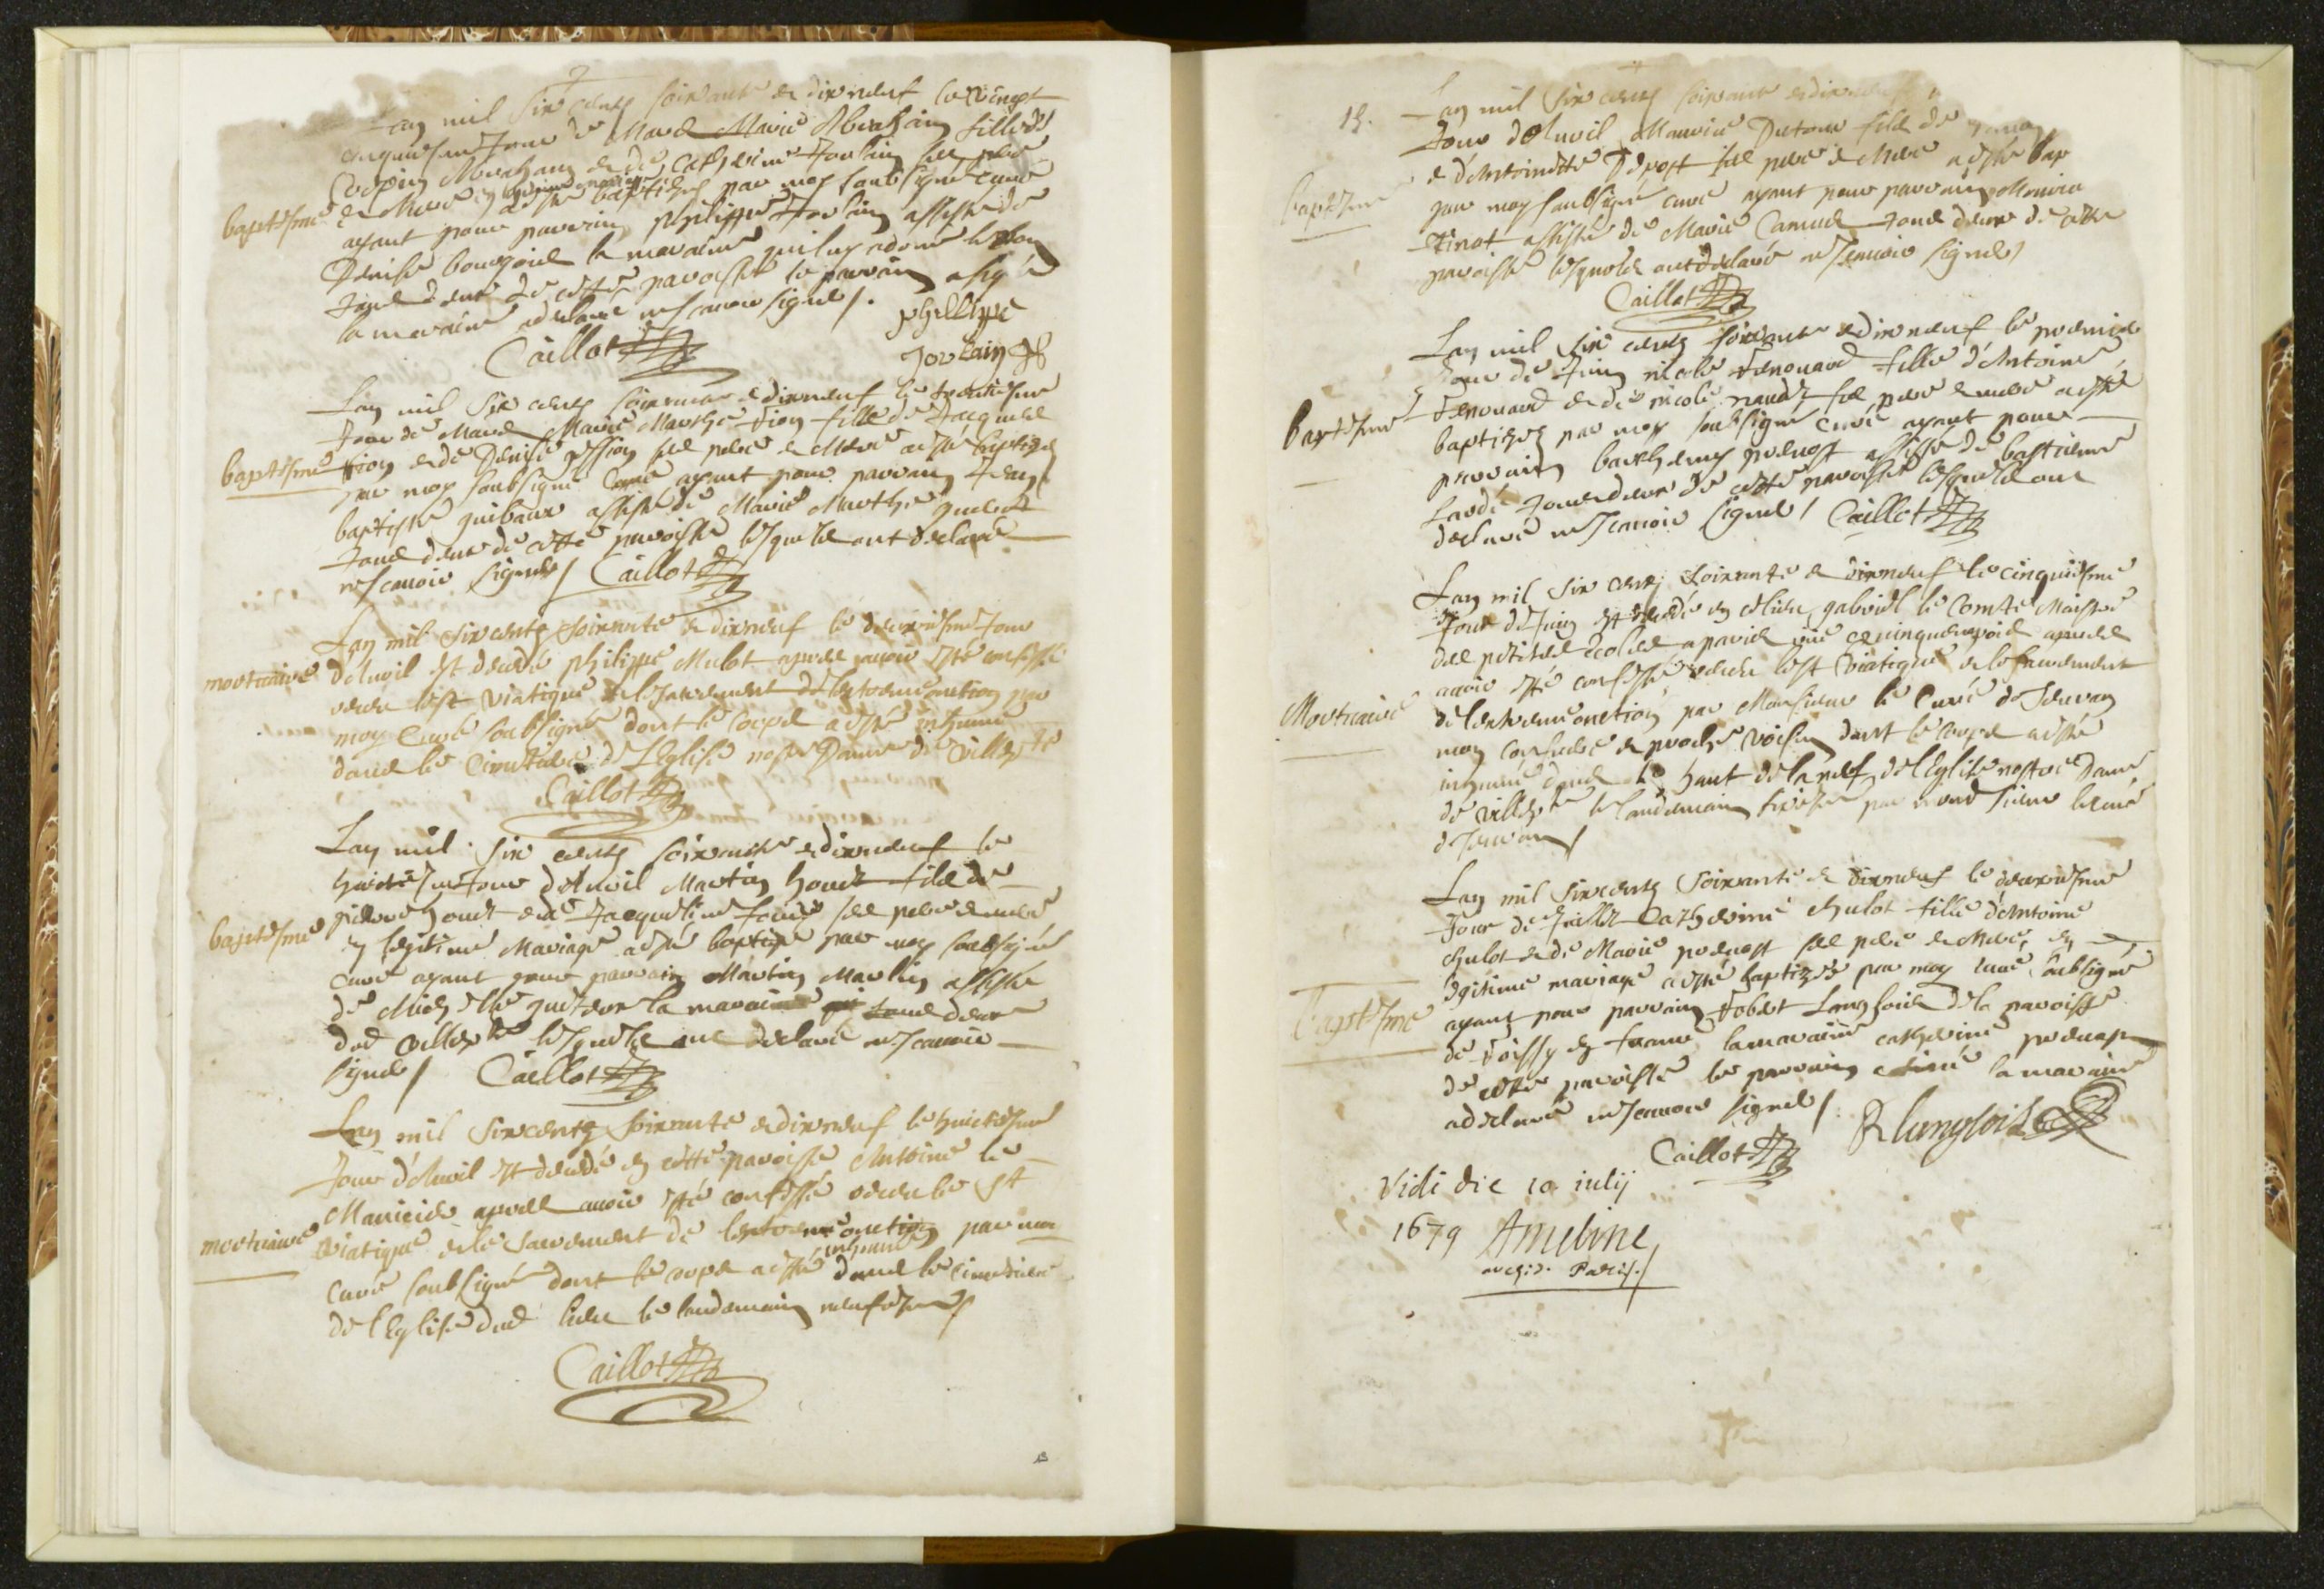 Lan mil six cents soixante et dix neuf le vingt
cinquiesme Jour de Mars Marie Abraham fille de
Crespin Abraham et de Catherine Joulain ses pere
et Mere en legitime mariage
a esté baptizez par moy soubsigné curé
baptesme
ayant pour parrain philippe Joulain assisté de
Denise bourgois la maraine qui luy a donné le nom
tous deux de cette paroisse le parrain a signé
la maraine a declaré ne scavoir signer /.
phillippe
Joulain
Caillot
Lan mil six cents soixante et dix neuf le trentiesme
Jour de Mars Marie Marthe fion fille de Jacques
baptesme
fion et de Denise ses pere et Mere a esté baptizez
par moy soubsigné Curé ayant pour parrain Jean
baptiste assisté de Marie Marthe
tous deux de cette paroisse lesquels ont declaré
ne scavoir signer / Caillot
Lan mil six cents soixante et dix neuf le deuxiesme Jour
mortuaire
d'Avril est decedé philippe Mulot apres avoir esté confessé
receu le st viatique et le sacrement de lextremeonction par
moy Curé soubsigné dont le corps a esté inhumé
dans le Cimetiere de l'Eglise nostre Dame de Villep^te
Caillot
Lan mil six cents soixante et dix neuf le
huictiesme Jour d'Avril Martin houet fils de
baptesme
pierre houet et de Jacqueline ses pere et mere
en legitime Mariage a esté baptizé par moy soubsigné
curé ayant pour parrain Martin Martin assisté
de la maraine tous deux
dud Villep^te lesquels ont declaré ne scavoir
signer / Caillot
Lan mil six cents soixante et dix neuf le huictiesme
Jour d'Avril est decedé en cette paroisse Antoine le
Mauricier apres avoir esté confessé receu le st
mortuaire
viatique et le sacrement de lextremeonction par moy
curé soubsigné dont le corps a esté inhumé dans le cimetiere
de l'Eglise dud lieu le lendemain neufiesme /
Caillot
13.
Lan mil six cents soixante et dix neuf
Jour d'Avril Maurice Dutour fils de
baptesme
et d'Antoinette ses pere et Mere a esté bap
par moy soubsigné curé ayant pour parrain Maurice
tinot assisté de Marie Camus tous deux de cette
paroisse lesquels ont declaré ne scavoir signer /
Caillot
Lan mil six cents soixante et dix neuf le premier
Jour de Juin nicole Renouard fille d'Antoine
baptesme
Renouard et de nicole naudet ses pere et mere a esté
baptizez par moy soubsigné curé ayant pour
parrain barthelemy prevost assisté de bastienne
Landé tous deux de cette paroisse lesquels ont
declaré ne scavoir signer / Caillot
Lan mil six cens soixante et dix neuf le cinquiesme
Jour de Juin est decedé en ce lieu gabriel le Comte Maistre
des petites écoles a paris apres
avoir esté confessé receu le st viatique et le sacrement
Mortuaire
de lextremeonction par Monsieur le Curé de Sevran
mon confrere et proche voisin dont le corps a esté
inhumé dans le haut de la nef de l'Eglise nostre Dame
de villep^te le lendemain sixiesme par mond sieur le curé
de Sevran /
Lan mil six cents soixante et dix neuf le deuxiesme
Jour de Juillet Catherine chulot fille d'Antoine
chulot et de Marie prevost ses pere et Mere en
legitime mariage a esté baptizez par moy curé soubsigné
Baptesme
ayant pour parrain Robert Langlois de la paroisse
de Roissy en france la maraine catherine prevost
de cette paroisse le parrain a signé la maraine
a declaré ne scavoir signer /.
R langlois
Caillot
Vidi die 10 iulij
1679 Ameline
archid. Paris.